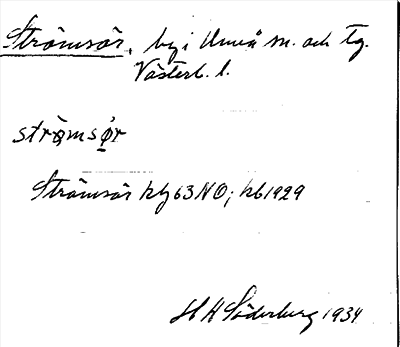 Strömsör, by i Umeå sn. och tg.
Västerb. l.
strömsǿr
Strömsör kbj 63 NO; kb 1929
H H Söderberg 1934